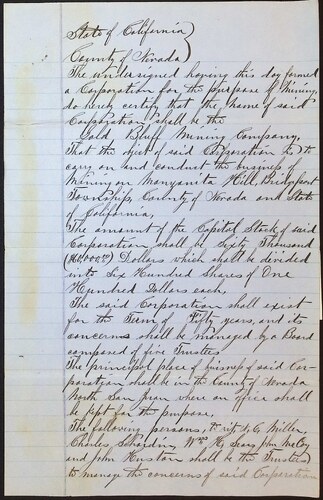 State of California )
County of Nevada )
The undersigned having this day formed
a Corporation for the purpose of Mining
do hereby certify that the name of said
Corporation shall be the
Gold Bluff Mining Company,
That the object of said Corporation is to
carry on and conduct the business of
Mining on Manzanita Hill, Bridgeport
Township, County of Nevada and State
of California,
The amount of the Capital Stock of said
Corporation shall be Sixty Thousand
Dollars which shall be divided
into Six Hundred Shares of One
Hundred Dollars each,
The said Corporation shall exist
for the Term of Fifty years, and its
concerns shall be managed by a Board
composed of five Trustees
The principal place of business of said Cor-
poration shall be in the County of Nevada
North San Juan where an office shall
be kept for the purpose,
The following persons, to wit, G. Miller,
Charles Wm H. Sears John McCoy
and John Huston shall be the Trustees
to manage the concerns of said Corporation